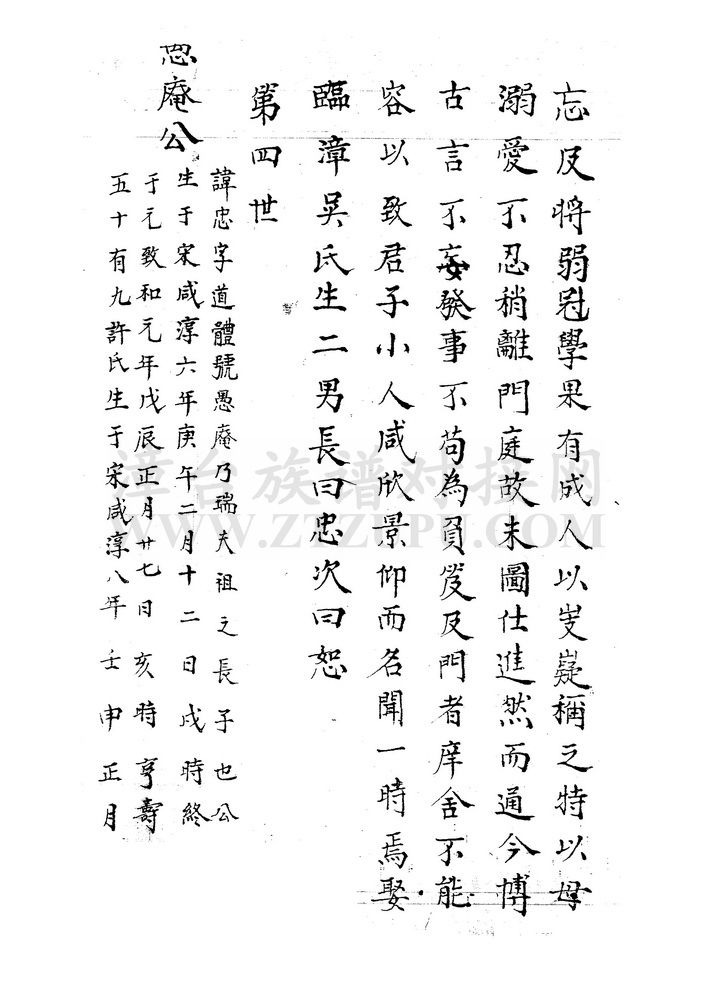 忘及將弱冠學果有成人以岐嶷稱之特以母
溺愛不忍稍離門庭故未圖仕進然而通今博
古言不妄發事不苟為負笈及門者庠舍不能
容以致君子小人咸欣景仰而名聞一時焉娶
臨漳吳氏生二男長曰忠次曰恕
第四世
愚庵公
諱忠字道體號愚庵乃瑞夫祖之長子也公
生于宋咸淳六年庚午二月十二日戌時終
于元致和元年戊辰正月廿七日亥時亨壽
五十有九許氏生于宋咸淳八年壬申正月
漳台族谱对接网
WWW.ZTZUPU.COM